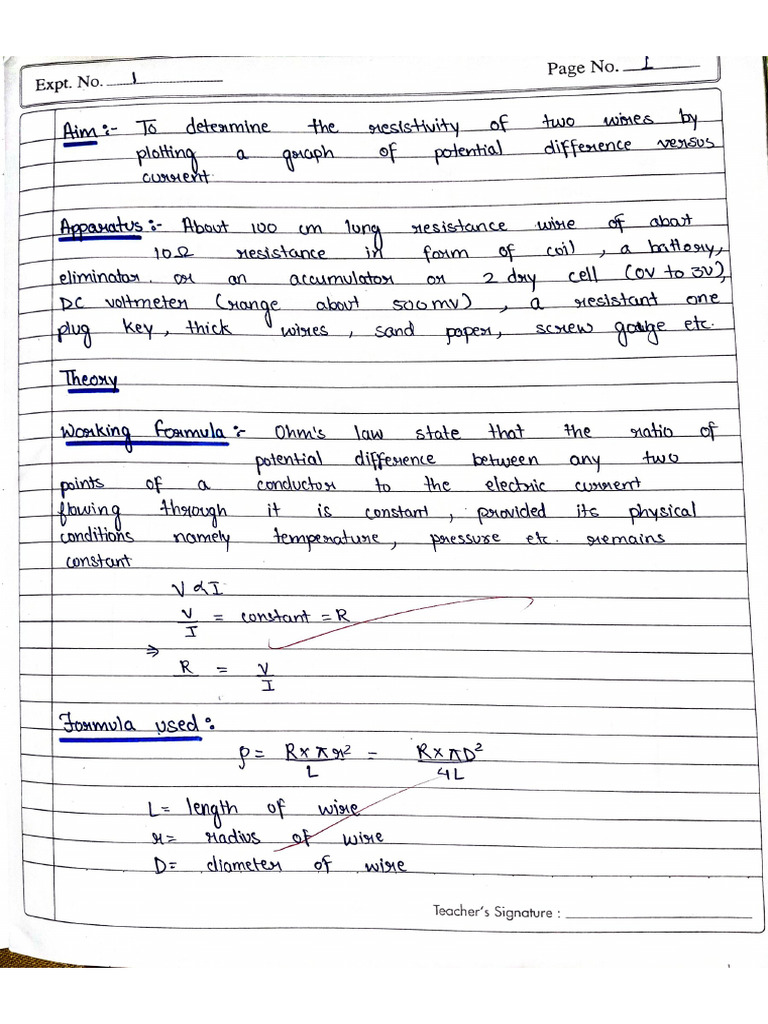 Expt. No. 1
Page No. 1
Aim :- To determine the resistivity of two wires by
plotting a graph of potential difference versus
current.
Apparatus :- About 100 cm lung resistance wire of abaut
10Ω resistance in form of coil, a battery,
eliminator. or an accumulator or 2 dry cell (0V to 3V),
DC voltmeter (range about 500mV), a resistant one
plug key, thick wires, sand paper, screw gauge etc.
Theory
Working formula :- Ohm's law state that the ratio of
potential difference between any two
points of a conductor to the electric current
flowing through it is constant, provided its physical
conditions namely temperature, pressure etc. remains
constant
V ∝ I
V/I = constant = R
⇒
R = V/I
Formula used :
ρ = R×πr²/L = R×πD²/4L
L = length of wire
r = radius of wire
D = diameter of wire
Teacher's Signature :